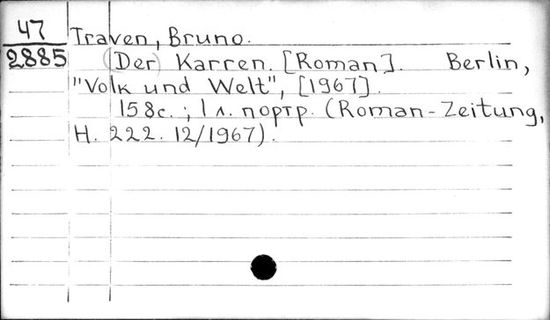 47
2885
Traven, Bruno.
(Der) Karren. [Roman]. Berlin,
"Volk und Welt", [1967].
158с.; 1 л. портр. (Roman-Zeitung,
H. 222. 12/1967).